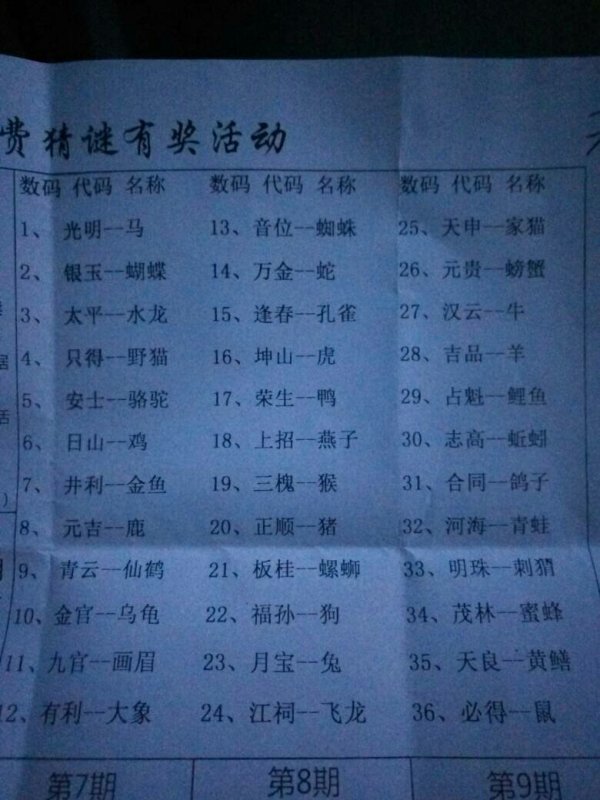 费猜谜有奖活动
数码 代码 名称 数码 代码 名称 数码 代码 名称
1、光明--马 13、音位--蜘蛛 25、天申--家猫
2、银玉--蝴蝶 14、万金--蛇 26、元贵--螃蟹
3、太平--水龙 15、逢春--孔雀 27、汉云--牛
4、只得--野猫 16、坤山--虎 28、吉品--羊
5、安士--骆驼 17、荣生--鸭 29、占魁--鲤鱼
6、日山--鸡 18、上招--燕子 30、志高--蚯蚓
7、井利--金鱼 19、三槐--猴 31、合同--鸽子
8、元吉--鹿 20、正顺--猪 32、河海--青蛙
9、青云--仙鹤 21、板桂--螺蛳 33、明珠--刺猬
10、金官--乌龟 22、福孙--狗 34、茂林--蜜蜂
11、九官--画眉 23、月宝--兔 35、天良--黄鳝
12、有利--大象 24、江祠--飞龙 36、必得--鼠
第7期 第8期 第9期